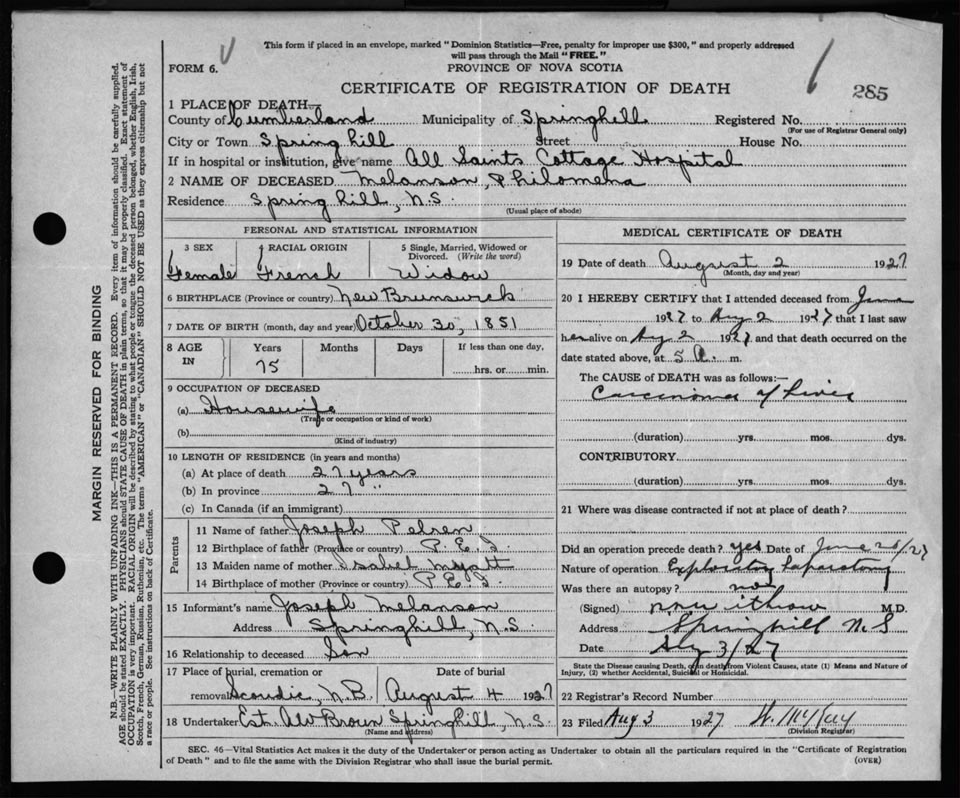 This form if placed in an envelope, marked "Dominion Statistics—Free, penalty for improper use $300," and properly addressed
will pass through the Mail "FREE."
FORM 6.
PROVINCE OF NOVA SCOTIA
CERTIFICATE OF REGISTRATION OF DEATH
285
1 PLACE OF DEATH—
County of Cumberland Municipality of Springhill Registered No.
(For use of Registrar General only)
City or Town Spring hill Street House No.
If in hospital or institution, give name All Saints Cottage Hospital
2 NAME OF DECEASED Melanson, Philomena
Residence Spring hill, N.S.
(Usual place of abode)
PERSONAL AND STATISTICAL INFORMATION
3 SEX 4 RACIAL ORIGIN 5 Single, Married, Widowed or
Divorced. (Write the word)
Female French Widow
6 BIRTHPLACE (Province or country) New Brunswick
7 DATE OF BIRTH (month, day and year) October 30, 1851
8 AGE IN Years Months Days If less than one day,
75 hrs. or min.
9 OCCUPATION OF DECEASED
(a) Housewife
(Trade or occupation or kind of work)
(b)
(Kind of industry)
10 LENGTH OF RESIDENCE (in years and months)
(a) At place of death 27 years
(b) In province 27 "
(c) In Canada (if an immigrant)
Parents
11 Name of father Joseph
12 Birthplace of father (Province or country) P.E.I.
13 Maiden name of mother Isabel
14 Birthplace of mother (Province or country) P.E.I.
15 Informant's name Joseph Melanson
Address Springhill, N.S.
16 Relationship to deceased Son
17 Place of burial, cremation or Date of burial
removal Scoudic, N.B. August 4 1927
18 Undertaker Est. AW Brown Springhill, N.S.
(Name and address)
MEDICAL CERTIFICATE OF DEATH
19 Date of death August 2 1927
(Month, day and year)
20 I HEREBY CERTIFY that I attended deceased from June
1927 to Aug 2 1927 that I last saw
her alive on Aug 2 1927, and that death occurred on the
date stated above, at 5 A. m.
The CAUSE of DEATH was as follows:—
Carcinoma of Liver
(duration) yrs. mos. dys.
CONTRIBUTORY
(duration) yrs. mos. dys.
21 Where was disease contracted if not at place of death?
Did an operation precede death? yes Date of June /27
Nature of operation Exploratory Laparotomy
Was there an autopsy? no
(Signed) M.D.
Address Springhill N S
Date Aug 3/27
State the Disease causing Death, or in death from Violent Causes, state (1) Means and Nature of
Injury, (2) whether Accidental, Suicidal or Homicidal.
22 Registrar's Record Number
23 Filed Aug 3 1927 W. McKay
(Division Registrar)
SEC. 46—Vital Statistics Act makes it the duty of the Undertaker or person acting as Undertaker to obtain all the particulars required in the "Certificate of Registration
of Death" and to file the same with the Division Registrar who shall issue the burial permit.
(OVER)
MARGIN RESERVED FOR BINDING
N.B.—WRITE PLAINLY WITH UNFADING INK—THIS IS A PERMANENT RECORD. Every item of information should be carefully supplied.
AGE should be stated EXACTLY. PHYSICIANS should STATE CAUSE OF DEATH in plain terms, so that it may be properly classified. Exact statement of
OCCUPATION is very important. RACIAL ORIGIN will be described by stating to what people or tongue the deceased person belonged, whether English, Irish,
Scotch, French, German, Russian, Ruthenian, etc. The terms "AMERICAN" or "CANADIAN" SHOULD NOT BE USED as they express citizenship but not
a race or people. See instructions on back of Certificate.